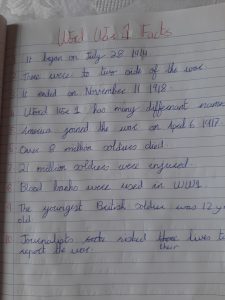 Word War 1 Facts
It began on July 28 1914
There were to two side of the war.
It ended on November 11 1918.
4 Word War 1 has many differant names
America joined the war on April 6 1917
5 Over 8 million soldiers died
21 million soldiers were injured.
8 Blood banks were used in WW1
9 The youngest British soldier was 12 y
old.
10 Journalists risked their lives to
report the war.